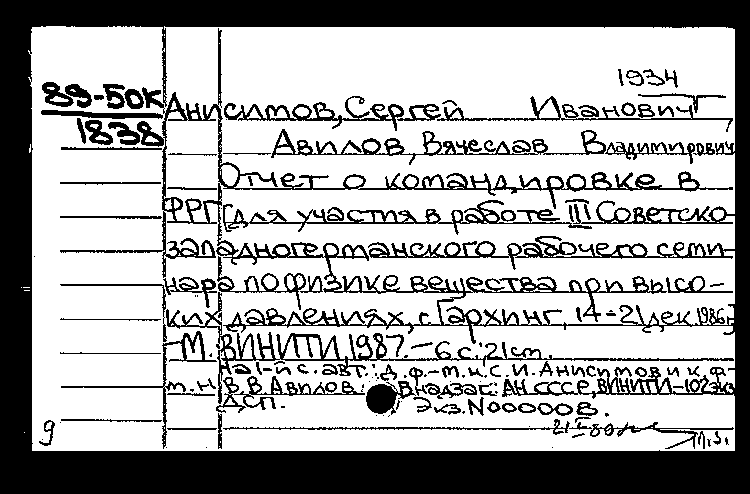 1934
89-50к Анисимов, Сергей Иванович
1838 Авилов, Вячеслав Владимирович
Отчет о командировке в
ФРГ [для участия в работе III Советско-
западногерманского рабочего семи-
нара по физике вещества при высо-
ких давлениях, г. Гархинг, 14-21 дек. 1986г.]
-М.: ВИНИТИ, 1987.-6 с.; 21 см.
На 1-й с. авт.: д. ф.-т. н. С. И. Анисимов и к. ф-
т. н. В. В. Авилов. В надзаг.: АН СССР, ВИНИТИ-102 экз
ДСП. Экз. N000008.
9